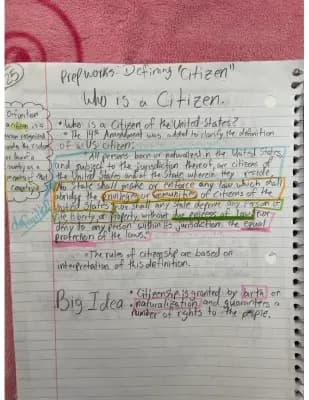 25
Prepworks: Defining "Citizen"
Who is a Citizen.
Definition
a citizen is a
person recognized
under the custom
or law of a
country as a
member of that
country
• Who is a Citizen of the United States?
• The 14th Amendment was added to clarify the definition
of a U.S citizen:
"All persons born or naturalized in the United States,
and subject to the jurisdiction thereof, are citizens of
the United States and of the State wherein they reside.
No State shall make or enforce any law which shall
abridge the privileges or immunities of citizens of the
United States; nor shall any State deprive any person of
life, liberty, or property, without due process of law; nor
deny to any person within its jurisdiction the equal
protection of the laws."
• The rules of citizenship are based on
interpretation of this definition.
Big Idea
• Citizenship is granted by birth or
naturalization and guarantees a
number of rights to the people.